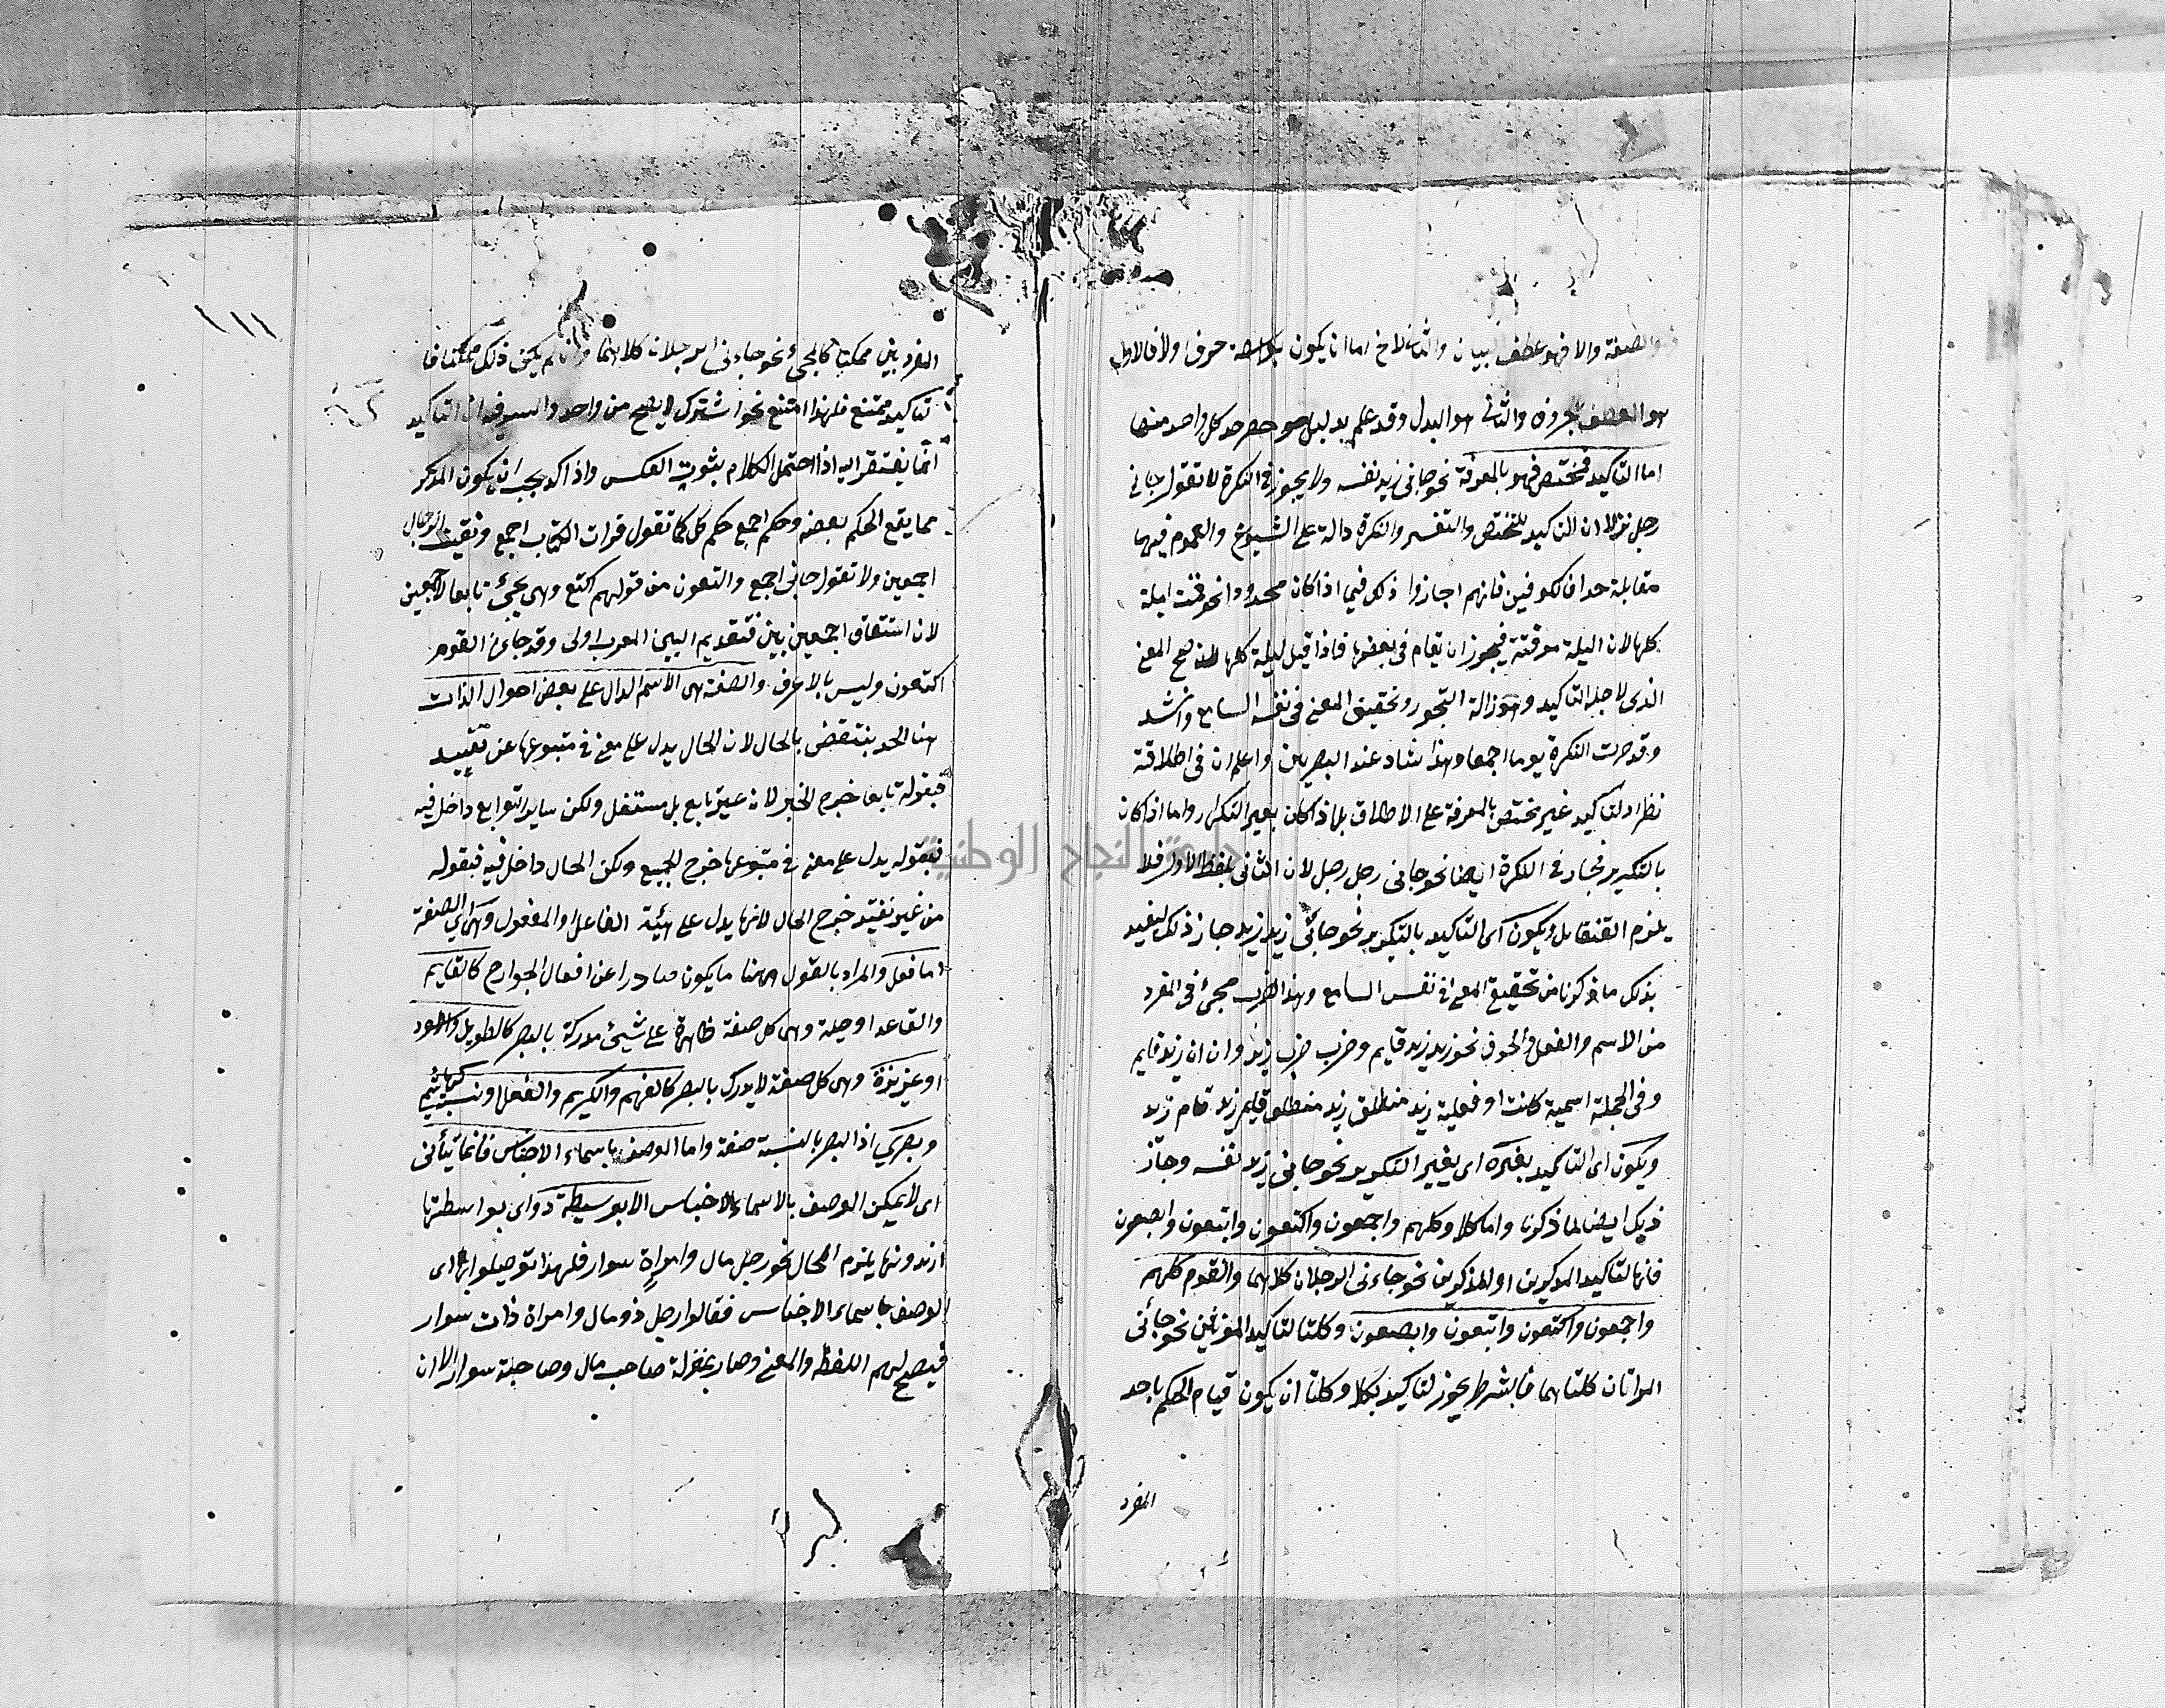 والصفة والا فهو عطف البيان والثانى لاخ اما ان يكون بواسطة حرف اولا فالاول
هو العطف بحروف والثانى هو البدل وقد علم بدليل حصر حد كل واحد منها
اما التاكيد فمختص فهو بالمعرفة نحو جانى زيد نفسه ولا يجوز فى النكرة لا تقول جانى
رجل نفسه لان التاكيد للتخصص والتفسير والنكرة دالة على الشيوع والعموم فيهما
مقابلة خلافا للكوفيين فانهم اجازوا ذلك فى اذا كان محدودا نحو قمت ليلة
كلها لان الليلة موقتة فيجوز ان يقام فى بعضها فاذا قيل ليلة كلها صح المعنى
الذى لاجله التاكيد وهو ازالة التجوز وتحقيق المعنى فى نفس السامع وانشد
وقد صرت النكرة يوما اجمعا وهذا شاد عند البصريين واعلم ان فى اطلاقه
نظرا التاكيد غير مختص بالمعرفة على الاطلاق بل اذا كان بغير التكرار واما اذا كان
بالتكرير فجاز فى النكرة ايضا نحو جانى رجل رجل لان الثانى بلفظ الاول فلا
يلزم التقابل ويكون اى التاكيد بالتكرير نحو جانى زيد زيد جاز ذلك ليفيد
بذلك ما ذكرنا من تحقيق المعنى فى نفس السامع وهذا الضرب مجئ فى المفرد
من الاسم والفعل والحرف نحو زيد زيد قايم وضرب ضرب زيد وان ان زيد قايم
وفى الجملة اسمية كانت او فعلية زيد منطلق زيد منطلق قام زيد قام زيد
ويكون اى التاكيد بغيره اى بغير التكرير نحو جانى زيد نفسه وجاز
ذلك ايضا لما ذكرنا واما كلا وكلهم واجمعون واكتعون وابتعون وابصعون
فانها لتاكيد المذكرين او المذكرين نحو جاءنى الرجلان كلاهما والقوم كلهم
واجمعون واكتعون وابتعون وابصعون وكلتا لتاكيد المؤنثين نحو جائنى
المراتان كلتاهما فالشرط يجوز لتاكيد بكلا وكلتا ان يكون قيام الحكم باحد
المفرد
المفردين ممكنا كالمجئ نحو جاءنى الرجلان كلاهما وان لم يكن ذلك ممكنا فا
تاكيد ممتنع فلهذا امتنع نحو اشترك لا يصح من واحد والسر فيه ان التاكيد
انما يفتقر اليه اذا احتمل الكلام بثبوت العكس واذا اكد يجب ان يكون المذكر
مما يقع الحكم بعضه وحكم اجمع حكم كل كما تقول قرات الكتاب اجمع ولقيت الرجال
اجمعين ولا تقول جانى اجمع والتعون من قولهم اكتع وهى يجئ تابعا لاجمعين
لان اشتقاق اجمعين بين فتقديم البين المعرب اولى وقد جانى القوم
اكتعون وليس بالاعرف والصفة هى الاسم الدال على بعض احوال الذات
هنا الحد ينتقض بالحال لان الحال يدل على معنى فى متبوعها عن تقييد
فبقوله تابع خرج الخبر لانه غير تابع بل مستقل ولكن ساير التوابع داخل فيه
فبقوله يدل على معنى فى متبوعها خرج الجميع ولكن الحال داخل فيه فبقوله
من غير تقييد خرج الحال لانها يدل على هيئة الفاعل او المفعول وهى اى الصفة
اما فعل والمراد بالقول ههنا ما يكون صادرا عن افعال الجوارح كالقايم
والقاعد او حلية وهى كل صفة ظاهرة على شيئ مدركة بالبصر كالطويل والاسود
او غريزة وهى كل صفة لا يدرك بالبصر كالفهم والكريم والعقل او نسبة كهاشمى
وبصرى اذ البصر بالنسبة صفة واما الوصف باسماء الاجناس فانما يتأتى
اى لا يمكن الوصف بالاسماء الاجناس الا بوسيطة ذو اى بواسطتها
اذ بدونها يلزم المحال نحو رجل مال وامراة سوار فلهذا توصيلوا بها اى
الوصف باسماء الاجناس فقالوا رجل ذو مال وامراة ذات سوار
فيصح لهم اللفظ والمعنى وصار بمنزلة صاحب مال وصاحبة سوار الا ان
جامعة النجاح الوطنية